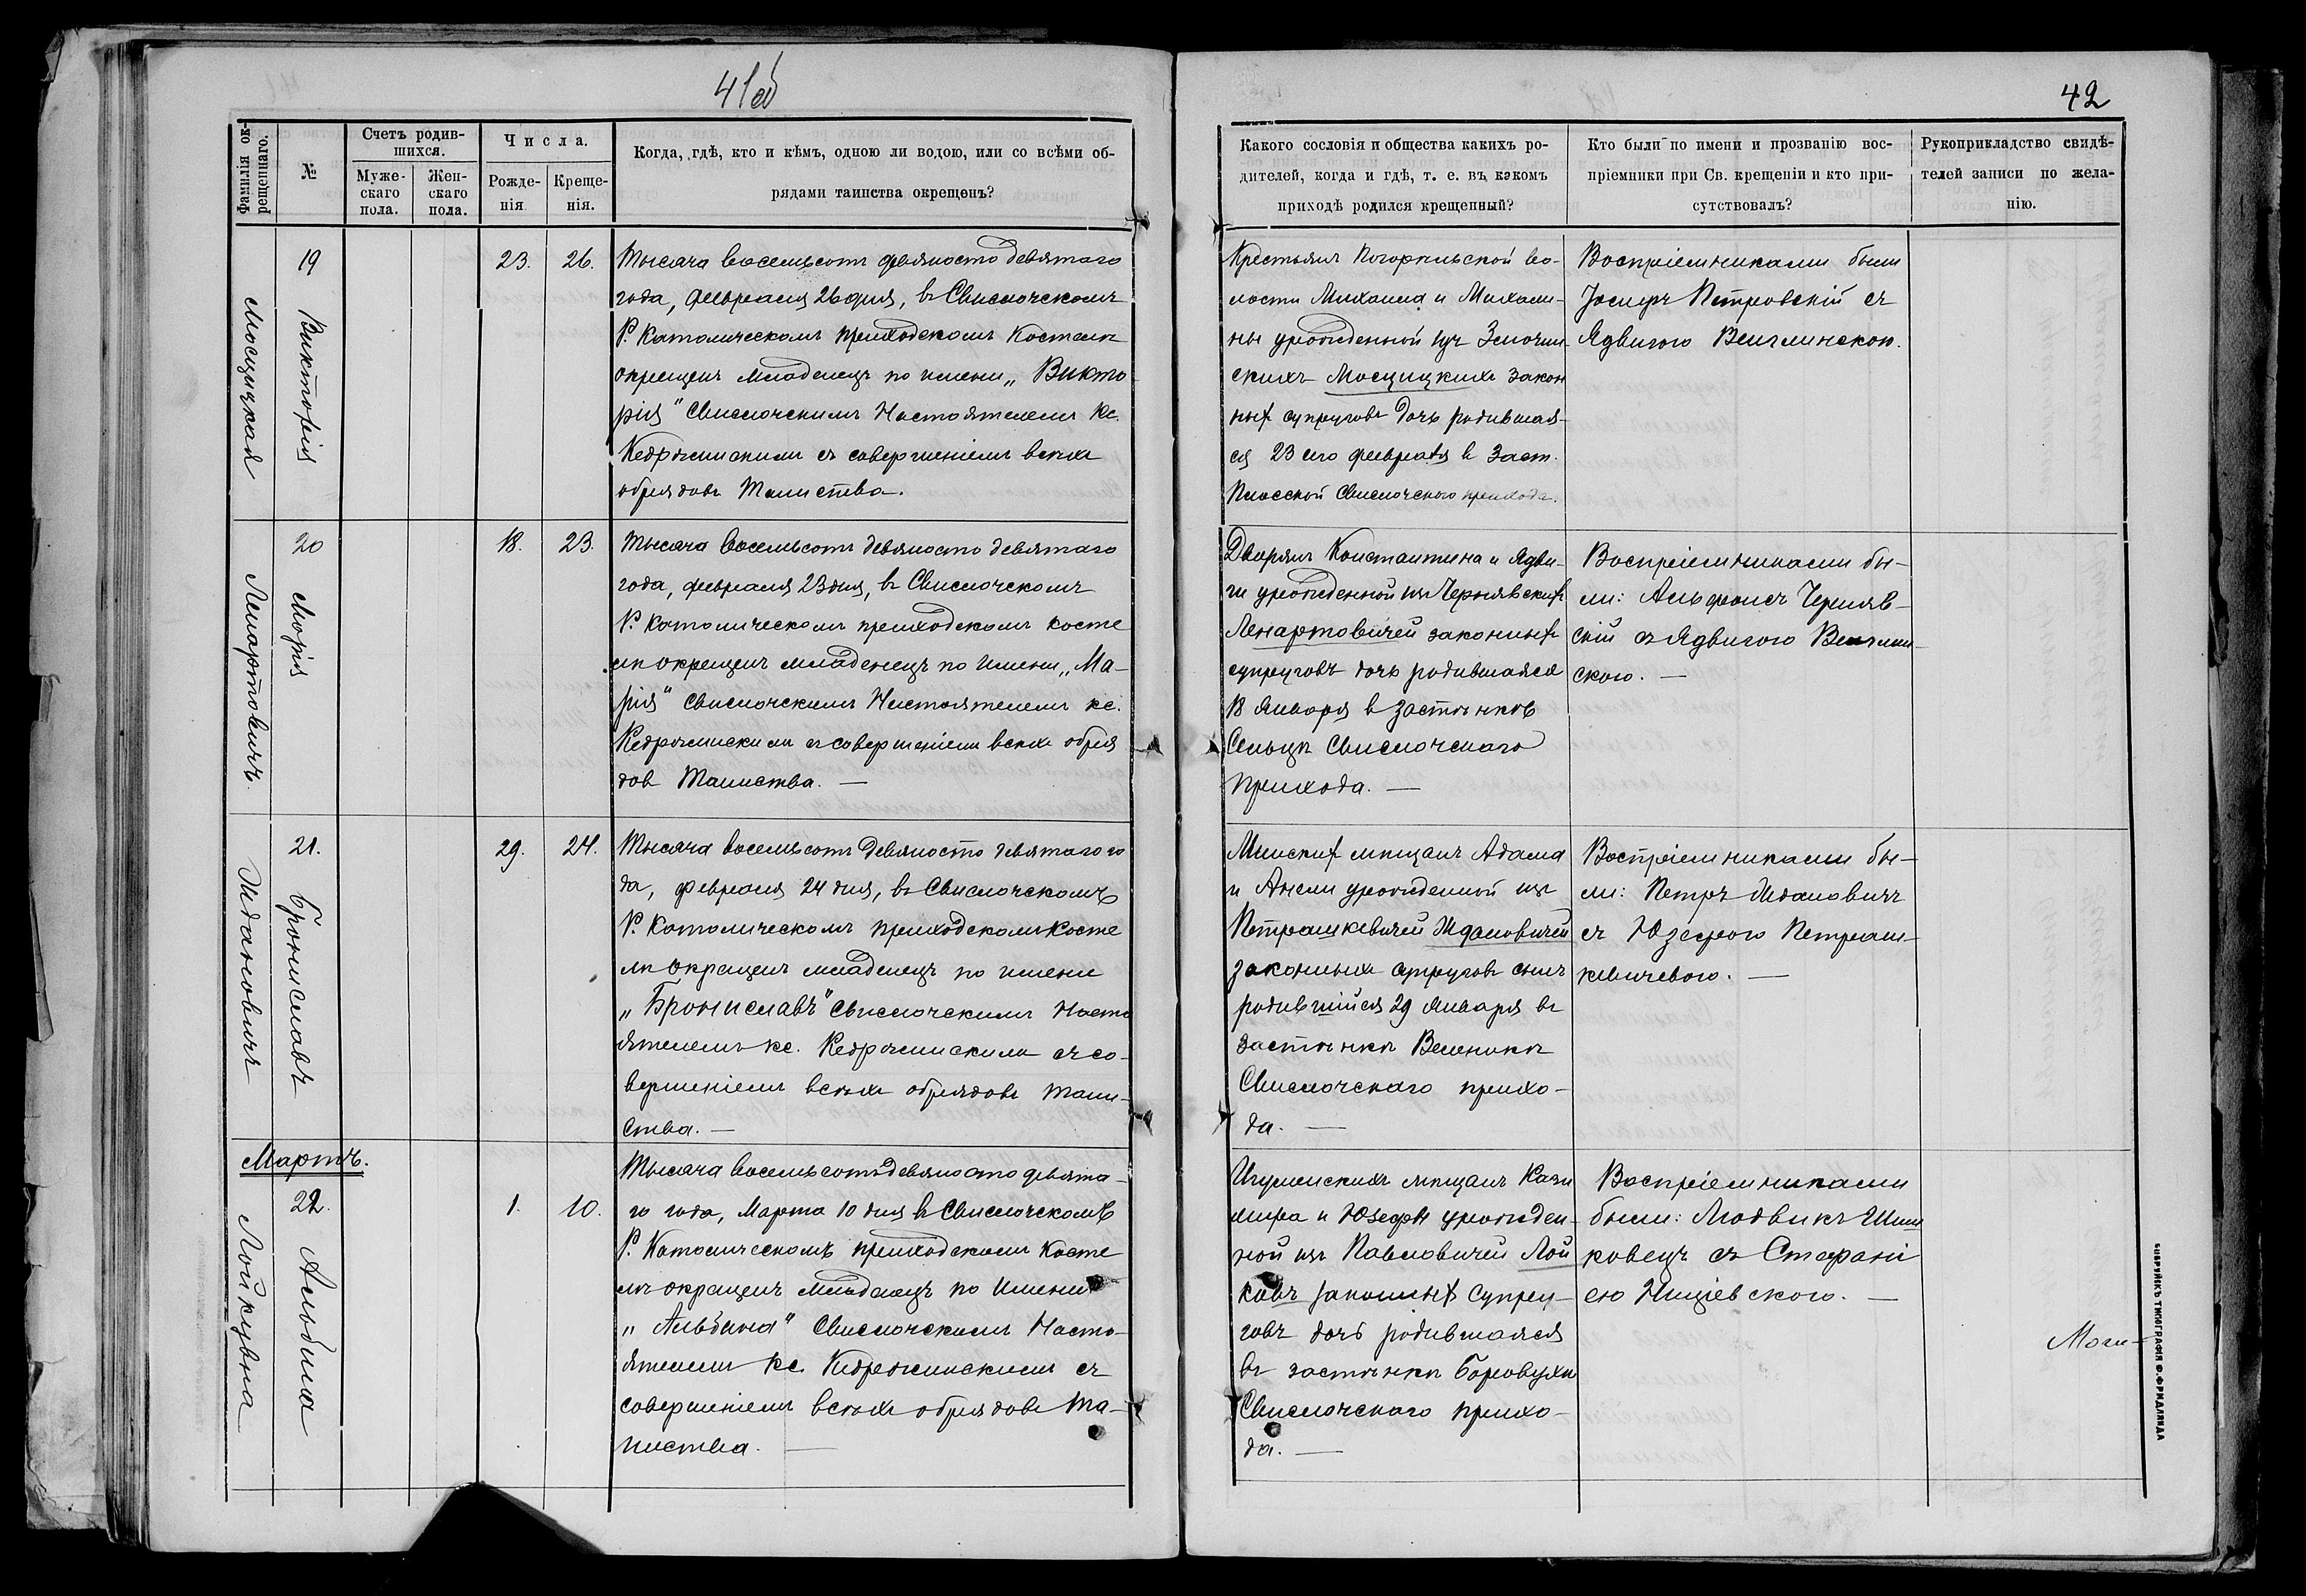 41об
Фамилія ок-
рещеннаго.
№
Счетъ родив-
шихся.
Муже-
скаго
пола.
Жен-
скаго
пола.
Числа.
Рожде-
нія
Креще-
нія.
Когда, гдѣ, кто и кѣмъ, одною ли водою, или со всѣми об-
рядами таинства окрещенъ?
Мосцицкая
19
Викторія
23.
26.
Тысяча восемьсотъ девяносто девятаго
года, февраля 26 дня, въ Свислочскомъ
Р. Католическомъ приходскомъ костелѣ
окрещенъ младенецъ по имени „Викто
рія" Свислочскимъ Настоятелемъ Кс.
съ совершеніемъ всѣхъ
обрядовъ Таинства.
Ленартовичъ
20
Марія
18.
23.
Тысяча восемьсотъ девяносто девятаго
года, февраля 23 дня, въ Свислочскомъ
Р. Католическомъ приходскомъ косте
лѣ окрещенъ младенецъ по имени „Ма-
рія" Свислочскимъ Настоятелемъ кс.
съ совершеніемъ всѣхъ обря
довъ Таинства. —
Ждановичъ
21.
Брониславъ
29.
24.
Тысяча восемьсотъ девяносто девятаго го
да, февраля 24 дня, въ Свислочскомъ
Р. Католическомъ приходскомъ косте
лѣ окрещенъ младенецъ по имени
„Брониславъ" Свислочскимъ Насто
ятелемъ кс. съ со-
вершеніемъ всѣхъ обрядовъ Таин-
ства. —
Мартъ.
Лойкувна
22.
Альбина
1.
10.
Тысяча восемьсотъ девяносто девята-
го года, Марта 10 дня въ Свислочскомъ
Р. Католическомъ приходскомъ косте
лѣ окрещенъ младенецъ по имени
„Альбина" Свислочскимъ Насто-
ятелемъ кс. съ
совершеніемъ всѣхъ обрядовъ Та-
инства. —
42
Какого сословія и общества какихъ ро-
дителей, когда и гдѣ, т. е. въ какомъ
приходѣ родился крещенный?
Кто были по имени и прозванію вос-
пріемники при Св. крещеніи и кто при-
сутствовалъ?
Рукоприкладство свидѣ-
телей записи по жела-
нію.
Крестьянъ Погорѣльской во-
лости Михаила и Михали-
ны урожденной изъ
скихъ Мосцицкихъ закон
ныхъ супруговъ дочь родившая-
ся 23 сего февраля въ Заст.
Свислочскаго прихода.
Воспріемниками были
Іосифъ Петровскій съ
Ядвигою
Дворянъ Константина и Ядви-
ги урожденной изъ Чернявскихъ
Ленартовичей законныхъ
супруговъ дочь родившаяся
18 Января въ застѣнкѣ
Сельцѣ Свислочскаго
прихода. —
Воспріемниками бы-
ли: Альфонсъ Черняв-
скій съ Ядвигою
скою. —
Минскихъ мѣщанъ Адама
и Анели урожденной изъ
Петрашкевичей Ждановичей
законныхъ супруговъ сынъ
родившійся 29 Января въ
застѣнкѣ
Свислочскаго прихо-
да. —
Воспріемниками бы-
ли: Петръ Ждановичъ
съ Юзефою Петраш-
кевичевою. —
Игуменскихъ мѣщанъ Кази
мира и Юзефы урожден-
ной изъ Павловичей Лой
ковъ законныхъ супру-
говъ дочь родившаяся
въ застѣнкѣ Боровухи
Свислочскаго прихо-
да. —
Воспріемниками
были: Людвикъ
ковецъ съ Стефані
ею
Моги-
БОБРУЙСКЪ ТИПОГРАФІЯ Ф. ФРИДЛЯНДА